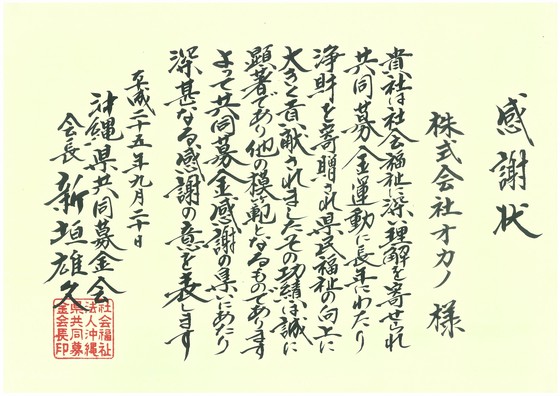 感謝状
株式会社オカノ 様
貴社は社会福祉に深い理解を寄せられ
共同募金運動に長年にわたり
浄財を寄贈され県民福祉の向上に
大きく貢献されましたその功績は誠に
顕著であり他の模範となるものであります
よって共同募金感謝の集いにあたり
深甚なる感謝の意を表します
平成二十五年九月二十日
沖縄県共同募金会
会長 新垣雄久
社会福祉
法人沖縄
県共同募
金会長印